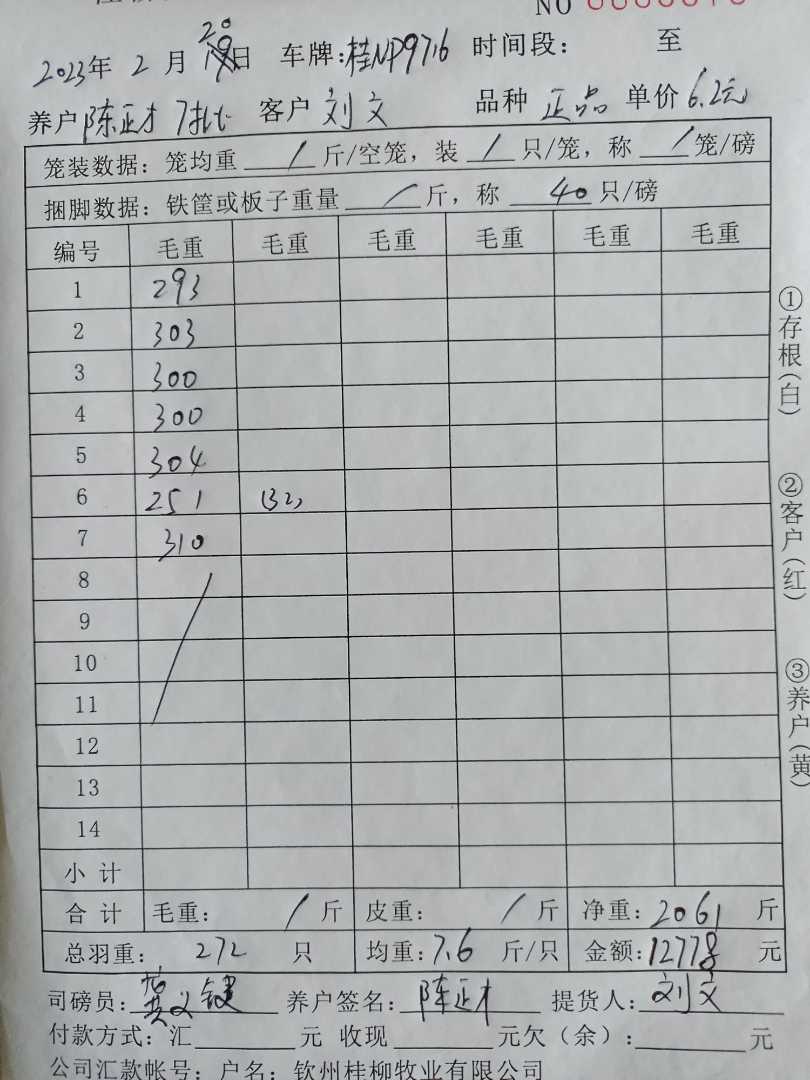 NO
20
2023年 2 月 19日 车牌:桂NP9716 时间段: 至
养户 陈正才 7批 客户 刘文 品种 正品 单价 6.2元
笼装数据: 笼均重 / 斤/空笼, 装 / 只/笼, 称 / 笼/磅
捆脚数据: 铁筐或板子重量 / 斤, 称 40 只/磅
编号 毛重 毛重 毛重 毛重 毛重 毛重
1 293
2 303
3 300
4 300
5 304
6 251 (32)
7 310
8
9
10
11
12
13
14
小计
合计 毛重: / 斤 皮重: / 斤 净重: 2061 斤
总羽重: 272 只 均重: 7.6 斤/只 金额: 12778 元
司磅员: 黄义键 养户签名: 陈正才 提货人: 刘文
付款方式: 汇 元 收现 元欠(余): 元
公司汇款帐号: 户名: 钦州桂柳牧业有限公司
①存根(白)
②客户(红)
③养户(黄)